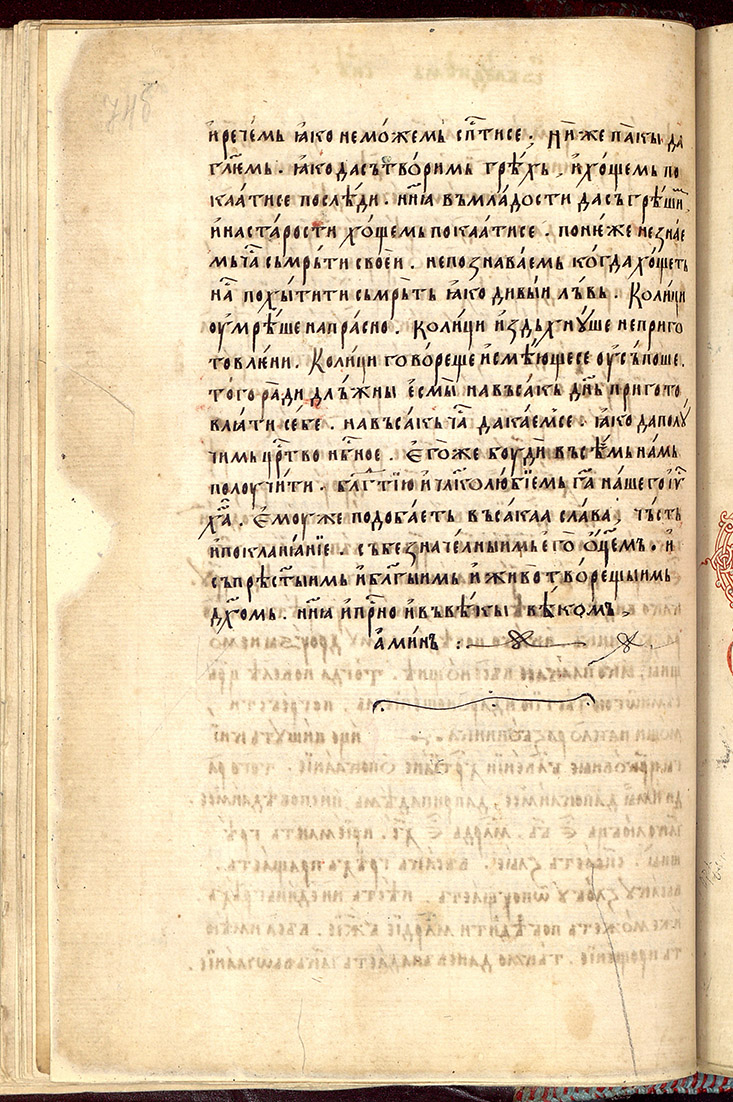 и҆ речем̀ь ꙗ҆ко не мо́жемь сп҃тисе . Ни́же па́кы да
гл҃емь . ꙗ҆ко да сътво́римь грѣ́хь , и҆ хо́щемь по
каꙗ́тисе послѣ́ди . нн҃ꙗ въ мла́дости да съгрѣ́шим̑
и҆ на ста́рости хо́щемь покаꙗ́тисе . поне́же не зна́е
мь ча̑ сьмрь́ти своеѝ . не познава́емь ко́гда хо́щеть
на̑ похы́тити сьмрь́ть ꙗ҆ко ди́выи льв́ь . Коли́ци
оу҆мрѣ́ше напра́сно . Коли́ци и҆здьхнꙋ́ше неприго
то́влѥни . Коли́ци гово́реще и҆ смѣю́щесе оу҆съ́поше .
то́го ра́ди дль́жны е҆смы̀ на въ́сакь дн҃ь пригото
влꙗ́ти се́бе . на въ́сакь ча̑ да ка́емсе . ꙗ҆ко да полꙋ́
чимь цр҃тво нб҃ное . Е҆го́же бꙋ́ди въ́сѣмь на́мь
полоучи́ти . бл҃гтїю и҆ чл҃колю́бїемь га҃ на́шего і҆ѵ҃
ха҃ . Е҆моу́же подоба́еть въ́сакаа сла́ва , чь́сть
и҆ поклани́ꙗнїе . съ безначе́лныимь е҆го̀ ѻ҆ц҃емь . и҆
съ прѣст҃ыимь и҆ бл҃гыимь и҆ живо́творещыимь
дх҃омь . нн҃ꙗ и҆ пр҃но и҆ въ вѣ́кы вѣ́комь ,
а҆ми́нь :
748